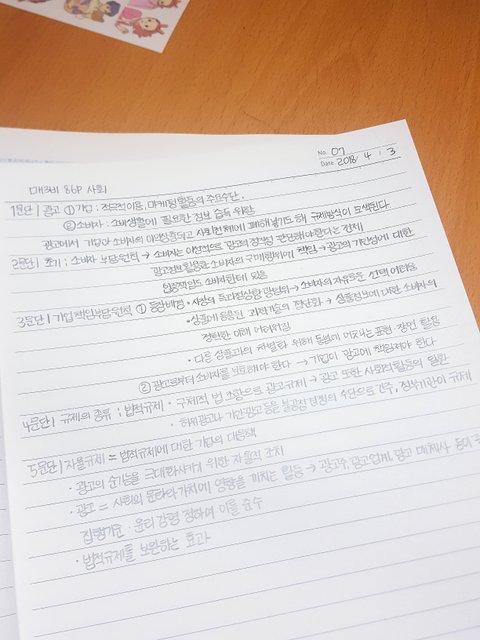 No. 07
Date 2018. 4. 3
매3비 86P 사회
1문단 | 광고 ① 기업 : 적극적 이용, 마케팅 활동의 주요수단.
② 소비자 : 소비생활에 필요한 정보 습득 위함
광고에서 기업과 소비자의 이익 상충되고 사회전체에 폐해 낳기도 해 규제방식이 모색된다
2문단 | 초기 : 소비자 책임 부담 원칙 → 소비자는 이성적으로 광고의 정직성 판단해야 한다는 전제
광고정보 활용한 소비자의 구매행위에 책임 → 광고의 기만성에 대한
입증책임도 소비자한테 있음
3문단 | 기업책임부담원칙 ① 등장배경 · 시장의 독과점상황 광범위 → 소비자의 자유로운 선택 어려움
· 상품에 응용된 과학기술의 첨단화 → 상품정보에 대한 소비자의
정확한 이해 어려워짐
· 다른 상품과의 차별화 위해 통념에 어긋나는 표현, 장면 활용
② 광고로부터 소비자를 보호해야 한다 → 기업이 광고에 책임져야 한다
4문단 | 규제의 종류 : 법적규제 · 구체적 법 조항으로 광고규제 → 광고 또한 사회적 활동의 일환
· 허위광고나 기만광고 등을 불공정 경쟁의 수단으로 간주, 정부기관이 규제
5문단 | 자율규제 = 법적규제에 대한 기업의 대응책
· 광고의 순기능을 극대화시키기 위한 자율적 조치
· 광고 = 사회의 문화와 가치에 영향을 끼치는 활동 → 광고주, 광고업계, 광고 매체사 등이
집행기준 · 윤리 강령 정하여 이를 준수
· 법적규제를 보완하는 효과